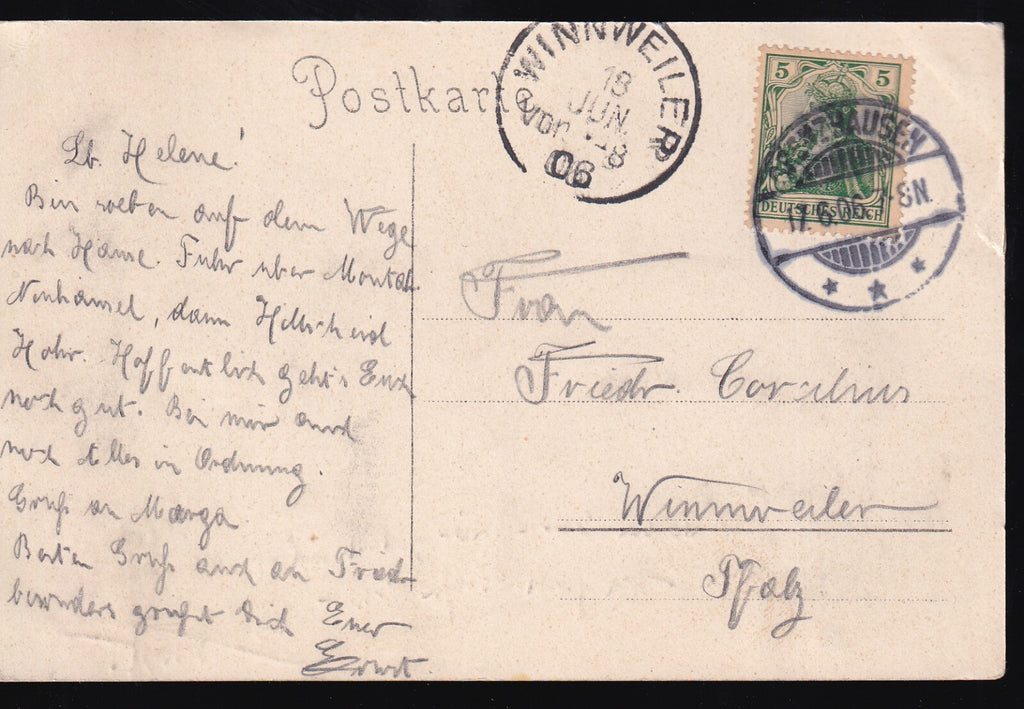 Postkarte
WINNWEILER
18
JUN.
vor. 7-8
06
5 5
DEUTSCHES REICH
GRENZHAUSEN
17.6.06. 7-8N.
Lb. Helene!
Bin soeben auf dem Wege
nach Hause. Fuhr über Montab.
Neuhäusel, dann Hillscheid
Höhr. Hoffentlich geht's Euch
noch gut. Bei mir auch
noch Alles in Ordnung.
Gruß an Marga.
Besten Gruß auch an Friedr.
besonders grüßt Dich Euer
Ernst.
Frau
Friedr. Cornelius
Winnweiler
Pfalz